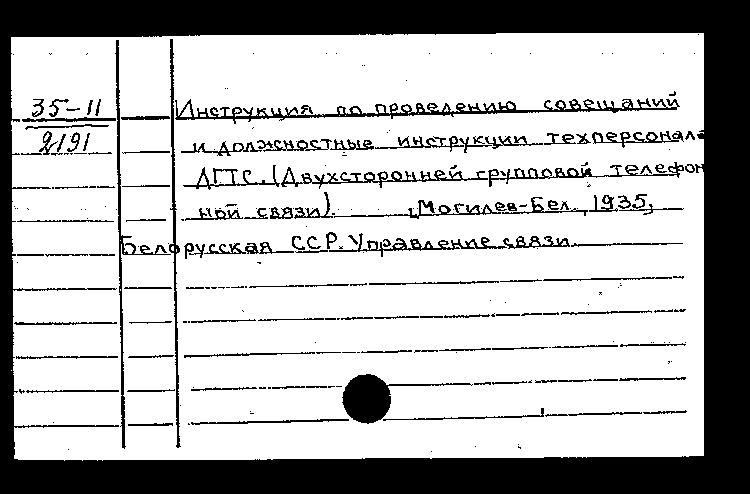 35-11
2191
Инструкция по проведению совещаний
и должностные инструкции техперсонала
ДГТС. (Двухсторонней групповой телефон
ной связи). Могилев-Бел., 1935,
Белорусская ССР. Управление связи.